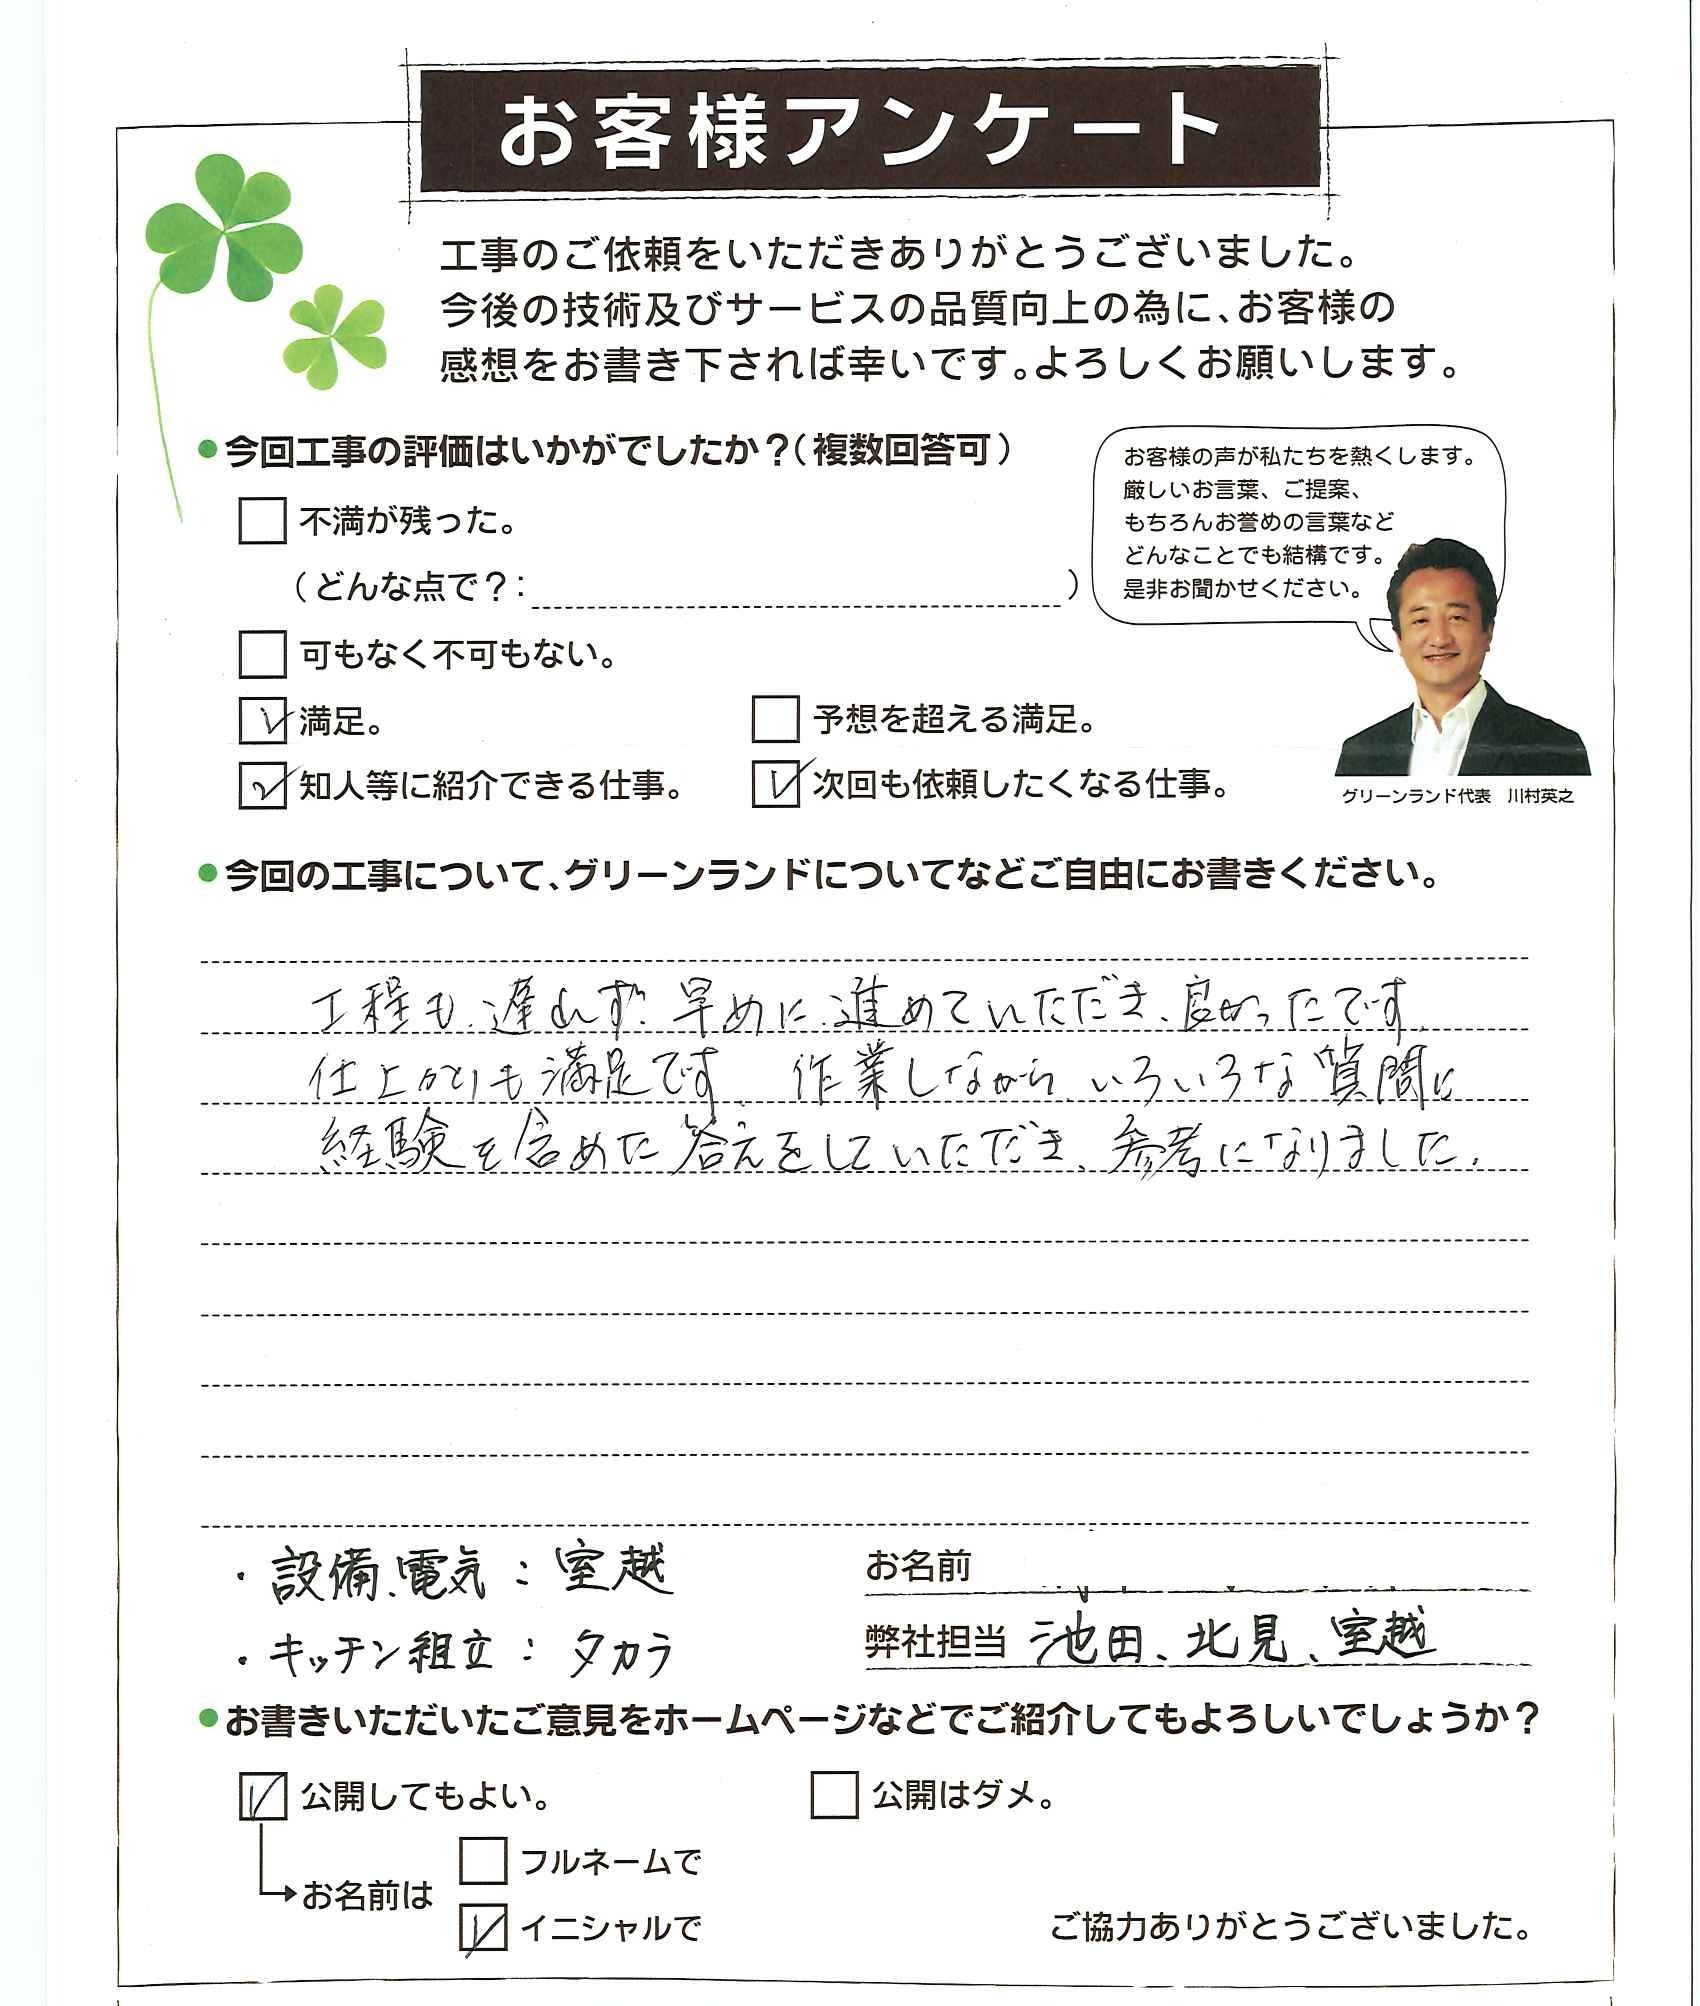 お客様アンケート
工事のご依頼をいただきありがとうございました。
今後の技術及びサービスの品質向上の為に、お客様の
感想をお書き下されば幸いです。よろしくお願いします。
●今回工事の評価はいかがでしたか?(複数回答可)
お客様の声が私たちを熱くします。
厳しいお言葉、ご提案、
もちろんお誉めの言葉など
どんなことでも結構です。
是非お聞かせください。
不満が残った。
(どんな点で?: )
可もなく不可もない。
満足。 予想を超える満足。
知人等に紹介できる仕事。 次回も依頼したくなる仕事。
グリーンランド代表 川村英之
●今回の工事について、グリーンランドについてなどご自由にお書きください。
工程も遅れず早めに進めていただき、良かったです。
仕上がりも満足です。作業しながら、いろいろな質問に
経験を含めた答えをしていただき、参考になりました。
・設備、電気：室越 お名前
・キッチン組立：タカラ 弊社担当 池田、北見、室越
●お書きいただいたご意見をホームページなどでご紹介してもよろしいでしょうか?
公開してもよい。 公開はダメ。
お名前は フルネームで
イニシャルで ご協力ありがとうございました。